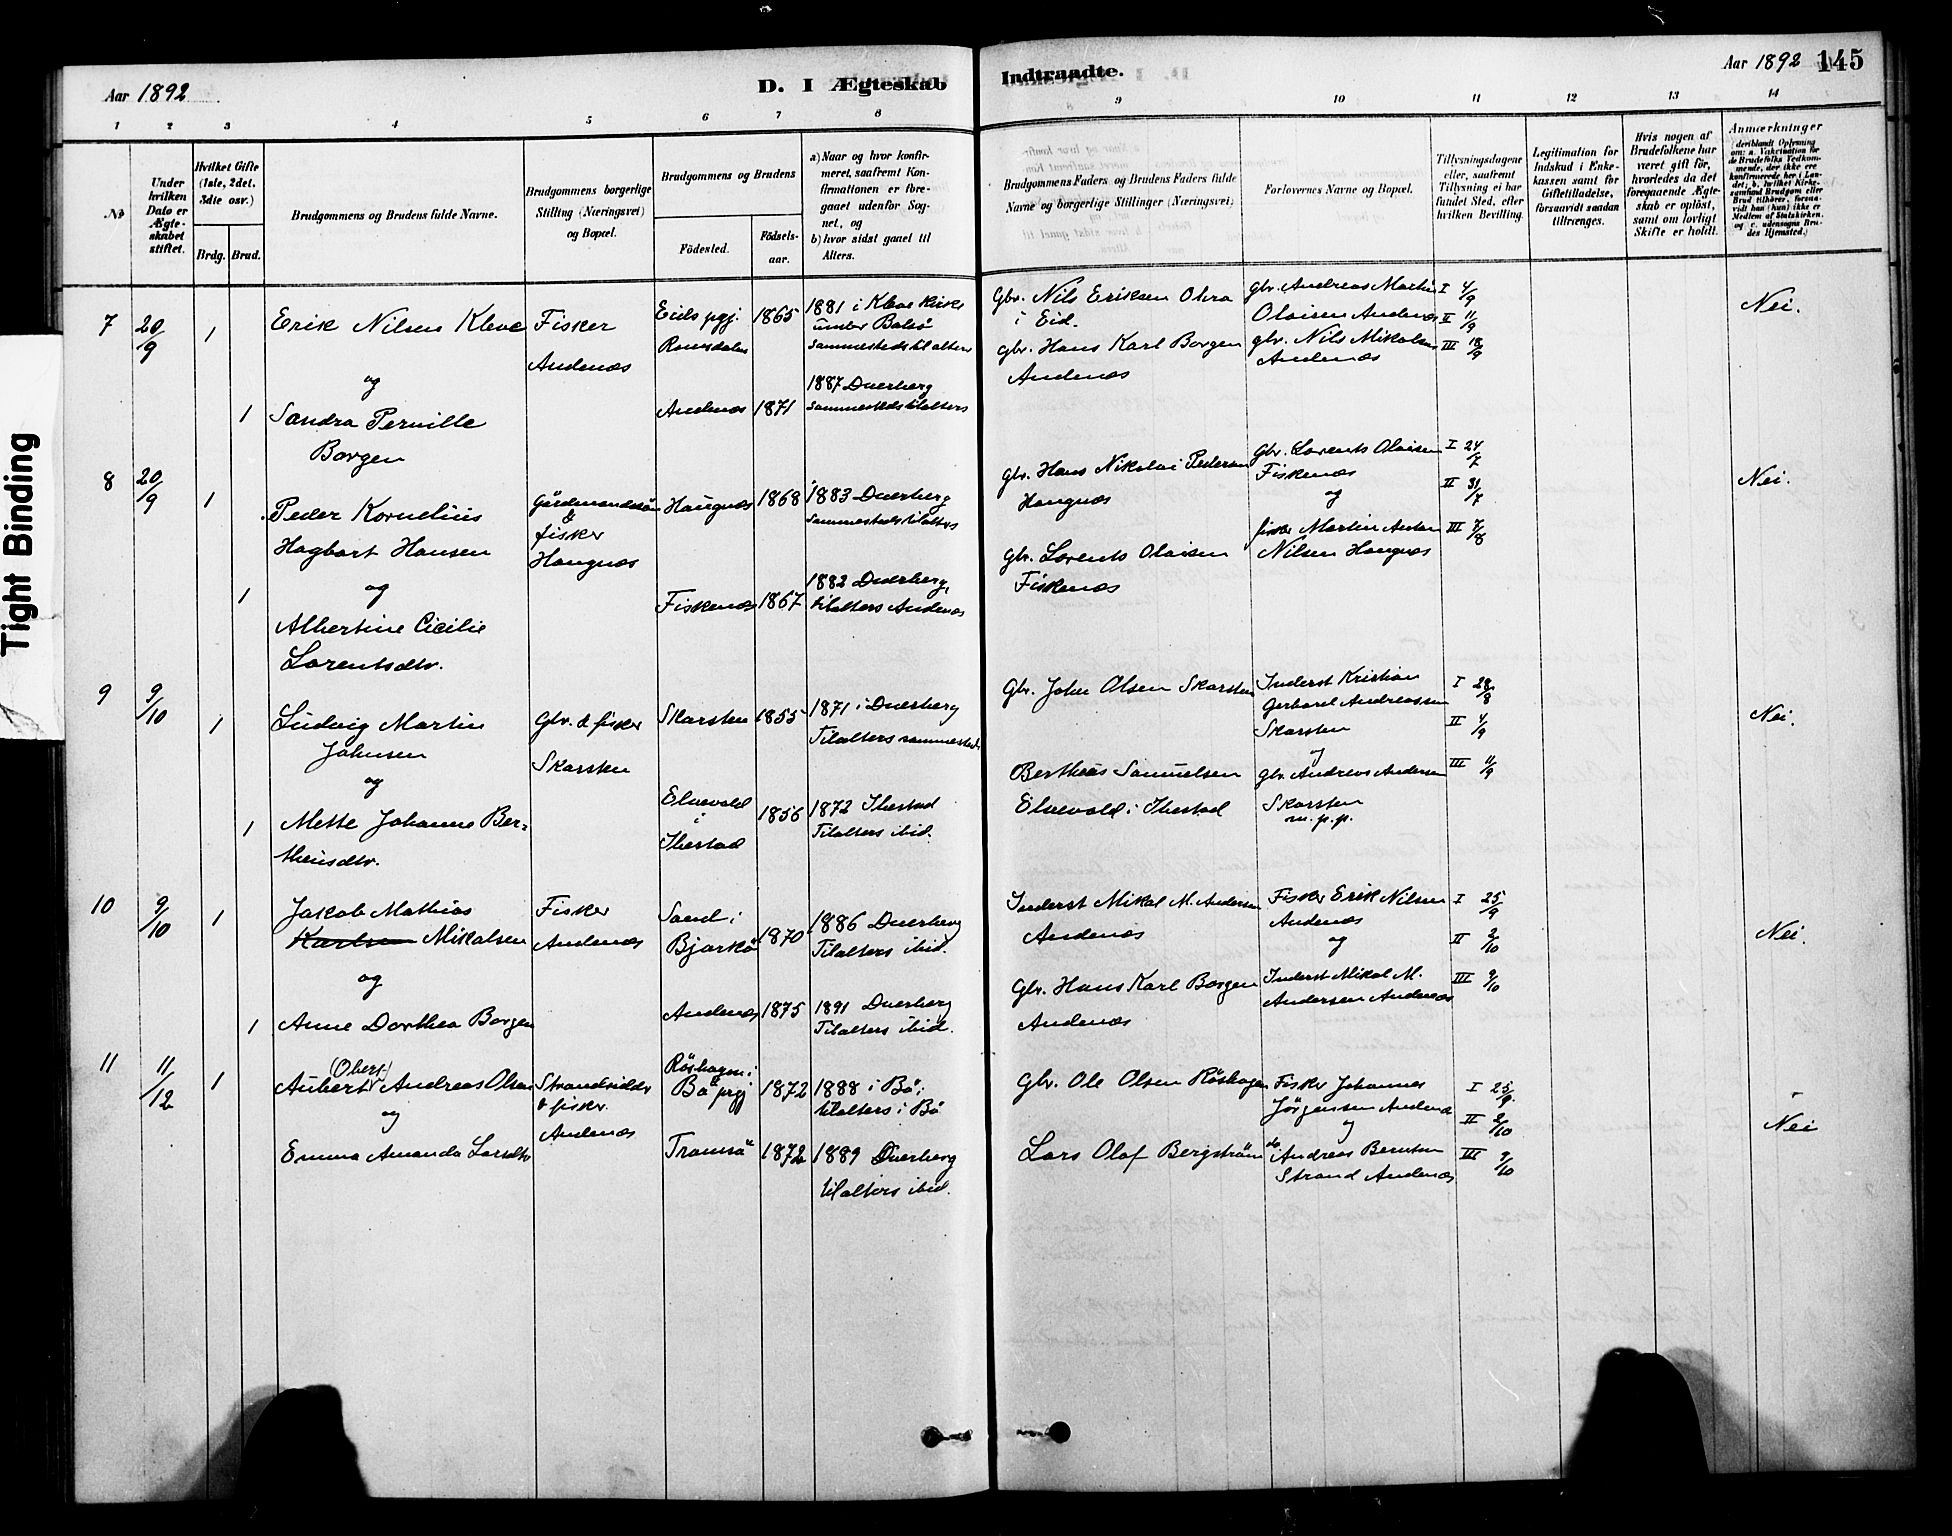 Tight Binding
Aar 1892
D. I Ægteskab
Indtraadte.
Aar 1892 145
1 2 3 4 5 6 7 8
9 10 11 12 13 14
No
Under hvilken Dato er Ægteskabet stiftet.
Hvilket Gifte (1ste, 2det, 3dte osv.)
Brdg. Brud.
Brudgommens og Brudens fulde Navne.
Brudgommens borgerlige Stilling (Næringsvei) og Bopæl.
Brudgommens og Brudens
Fødested.
Fødselsaar.
a) Naar og hvor konfirmeret, saafremt Konfirmationen er foregaaet udenfor Sognet, og
b) hvor sidst gaaet til Alters.
Brudgommens Faders og Brudens Faders fulde Navne og borgerlige Stillinger (Næringsvei)
Forlovernes Navne og Bopæl.
Tillysningsdagene eller, saafremt Tillysning ei har fundet Sted, efter hvilken Bevilling.
Legitimation for Indskud i Enkekassen samt for Giftetilladelse, forsaavidt saadan tiltrænges.
Hvis nogen af Brudefolkene har været gift før, hvorledes da det foregaaende Ægteskab er opløst, samt om lovligt Skifte er holdt.
Anmærkninger
(deriblandt Oplysning om: a. Vakcination for de Brudefolks Vedkommende, der ikke ere konfirmerede her i Landet; b. hvilket Kirkesamfund Brudgom eller Brud tilhører, forsaavidt han (hun) ikke er Medlem af Statskirken, og c. udensogns Brudes Hjemsted.)
7 20/9 1
Erik Nilsen Kleve
og
1 Sandra Pernille
Borgen
Fisker
Andenæs
Eids pgj.
Romsdalen 1865
Andenæs 1871
1881 i Kleve Kirke
under Bolsö
sammesteds til alters
1887 Dverberg
sammesteds til alters
Gbr. Nils Eriksen Okra
i Eid.
gbr. Hans Karl Borgen
Andenæs
gbr. Andreas Martin
Olaisen Andenæs
gbr. Nils Mikalsen
Andenæs
I 4/9
II 11/9
III 18/9
Nei.
8 20/9 1
Peder Kornelius
Hagbart Hansen
og
1 Albertine Cicilie
Lorentsdtr.
Gårdmandssön
&
fisker
Haugnæs
Haugnæs 1868
Fiskenæs 1867
1883 Dverberg
sammesteds til alters
1882 Dverberg,
til alters Andenæs
gbr. Hans Nikolai Pedersen
Haugnæs
gbr. Lorents Olaisen
Fiskenæs
Gbr. Lorents Olaisen
Fiskenæs
og
fisker Martin Anton
Nilsen Haugnæs
I 24/7
II 31/7
III 7/8
Nei.
9 9/10 1
Ludvig Martin
Johnsen
og
1 Mette Johanne Ber-
theusdtr.
Gbr. & fisker
Skarsten
Skarsten 1855
Elvevold
i
Ibestad 1856
1871 i Dverberg
Til alters sammesteds
1872 Ibestad
Til alters ibid.
Gbr. John Olsen Skarsten
Bertheus Samuelsen
Elvevold i Ibestad
Inderst Kristian
Gerhard Andreassen
Skarsten
og
gbr. Andreas Andersen
Skarsten
m. p. p.
I 28/8
II 4/9
III 11/9
Nei.
10 9/10 1
Jakob Mathias
Karlsen Mikalsen
og
1 Anne Dorthea Borgen
Fisker
Andenæs
Sand i
Bjarkö 1870
Andenæs 1875
1886 Dverberg
Til alters ibid.
1891 Dverberg
Til alters ibid.
Inderst Mikal M. Andersen
Andenæs
Gbr. Hans Karl Borgen
Andenæs
Fisker Erik Nilsen
Andenæs
og
Inderst Mikal M.
Andersen Andenæs
I 25/9
II 2/10
III 9/10
Nei.
11 11/12 1
(Obert)
Aubert Andreas Olsen
og
Emma Amanda Larsdtr
Strandsidder
& fisker.
Andenæs
Röshagen i
Bö prgj 1872
Tromsö 1872
1888 i Bö;
til alters i Bö
1889 Dverberg
til alters ibid.
Gbr. Ole Olsen Röshagen
Lars Olaf Bergström
Fisker Johannes
Jörgensen Andenæs
og
do Andreas Berntsen
Strand Andenæs
I 25/9.
II 2/10
III 9/10
Nei